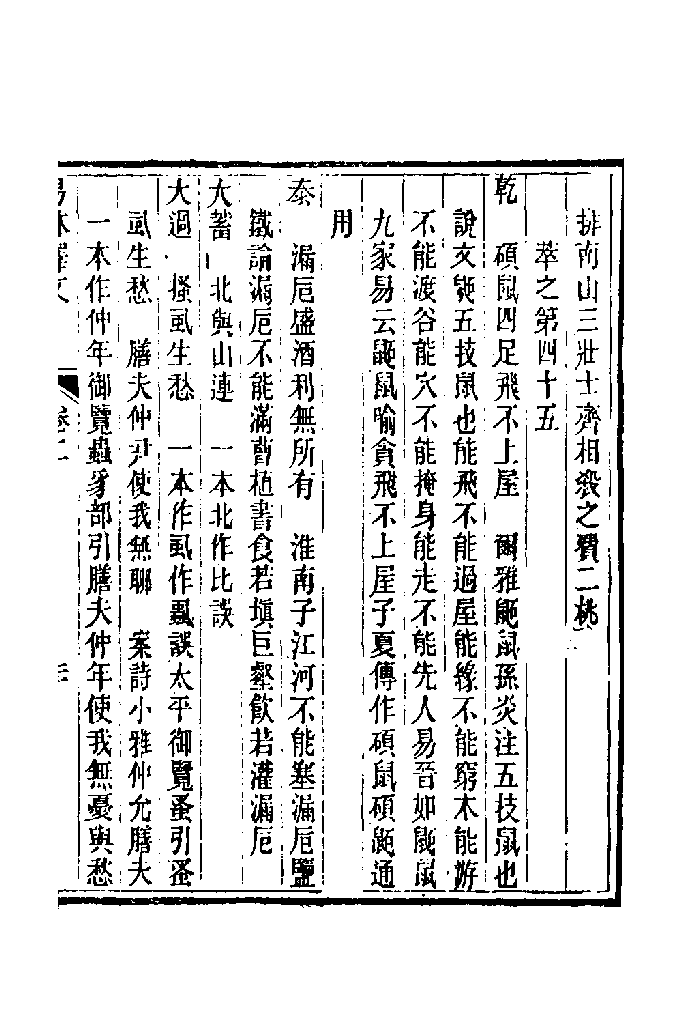 排南山三壯士齊相殺之費二桃
萃之第四十五
乾　碩鼠四足飛不上屋　爾雅鼫鼠孫炎注五技鼠也
說文鼫五技鼠也能飛不能過屋能緣不能窮木能游
不能渡谷能穴不能掩身能走不能先人易晉如鼫鼠
九家易云鼫鼠喻貪飛不上屋子夏傳作碩鼠碩鼫通
用
泰　漏卮盛酒利無所有　淮南子江河不能塞漏卮鹽
鐵論漏卮不能滿曹植書食若塡巨壑飮若灌漏卮
大蓄　北與山連　一本北作比誤
大過　搔虱生愁　一本作虱作飄誤太平御覽蚤引蚤
虱生愁　膳夫仲尹使我無聊　案詩小雅仲允膳夫
一本作仲年御覽蟲豸部引膳夫仲年使我無憂與愁
易林釋文　卷二